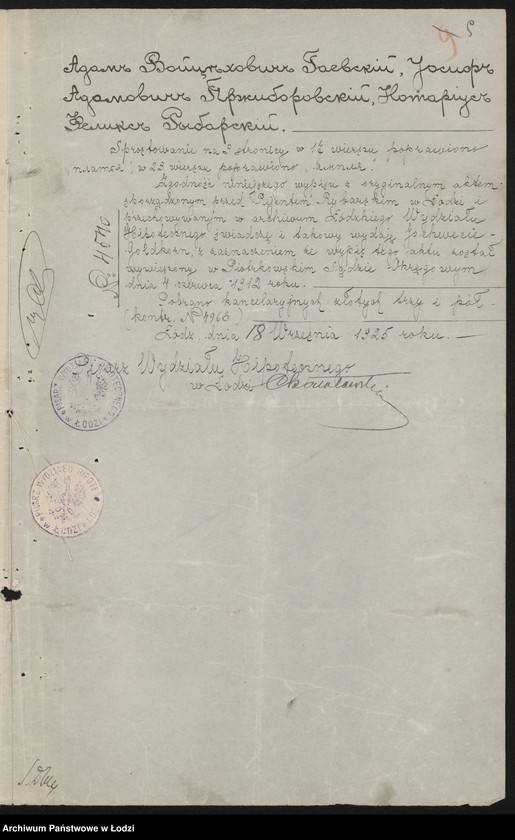 9 5
Адамъ Войцѣховичъ Гаевскій, Іосифъ
Адамовичъ Пржиборовскій, Нотаріусъ
Феликсъ Рыбарскій.
Sprostowanie na stronicy w 17 wierszu poprawiono
w 23 wierszu poprawiono
Zgodność niniejszego wypisu z oryginalnym aktem
sporządzonym przed Rejentem Rybarskim w Łodzi i
przechowywanym w archiwum Łódzkiego Wydziału
Hipotecznego świadczę i takowy wydaję
Goldkorn, z zaznaczeniem że wypis tego aktu został
wywieszony w Piotrkowskim Sądzie Okręgowym
dnia 4 czerwca 1912 roku.
Pobrano kancelaryjnych złotych trzy i pół
(kontr. № 4963)
Łódź, dnia 18 Września 1925 roku.
Pisarz Wydziału Hipotecznego
w Łodzi
PISARZ WYDZIAŁU HIPOTECZNEGO w ŁODZI
PISARZ WYDZIAŁU HIPOT. w ŁODZI
Archiwum Państwowe w Łodzi